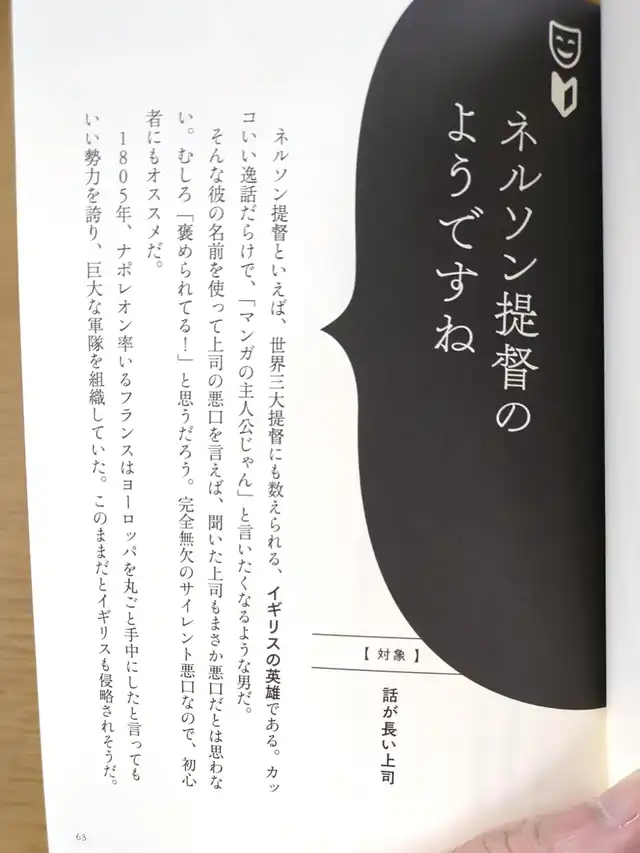 ネルソン提督の
ようですね
【対象】
話が長い上司
ネルソン提督といえば、世界三大提督にも数えられる、イギリスの英雄である。カッ
コいい逸話だらけで、「マンガの主人公じゃん」と言いたくなるような男だ。
そんな彼の名前を使って上司の悪口を言えば、聞いた上司もまさか悪口だとは思わな
い。むしろ「褒められてる！」と思うだろう。完全無欠のサイレント悪口なので、初心
者にもオススメだ。
1805年、ナポレオン率いるフランスはヨーロッパを丸ごと手中にしたと言っても
いい勢力を誇り、巨大な軍隊を組織していた。このままだとイギリスも侵略されそうだ。
63